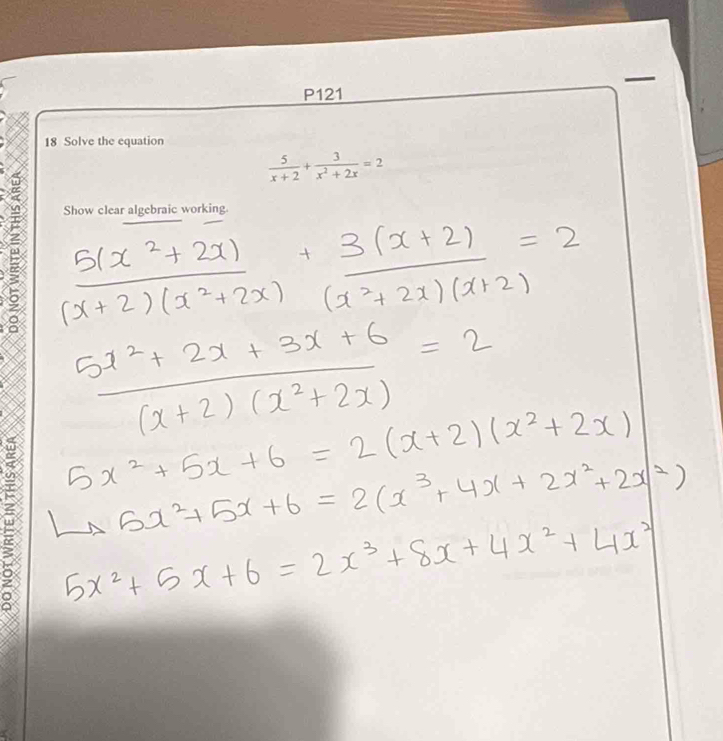 P121
18 Solve the equation
5/(x + 2) + 3/(x² + 2x) = 2
Show clear algebraic working.
5(x² + 2x)/((x + 2)(x² + 2x)) + 3(x + 2)/((x² + 2x)(x + 2)) = 2
(5x² + 2x + 3x + 6)/((x + 2)(x² + 2x)) = 2
5x² + 5x + 6 = 2(x + 2)(x² + 2x)
↳ 5x² + 5x + 6 = 2(x³ + 4x + 2x² + 2x²)
5x² + 5x + 6 = 2x³ + 8x + 4x² + 4x²
DO NOT WRITE IN THIS AREA
DO NOT WRITE IN THIS AREA